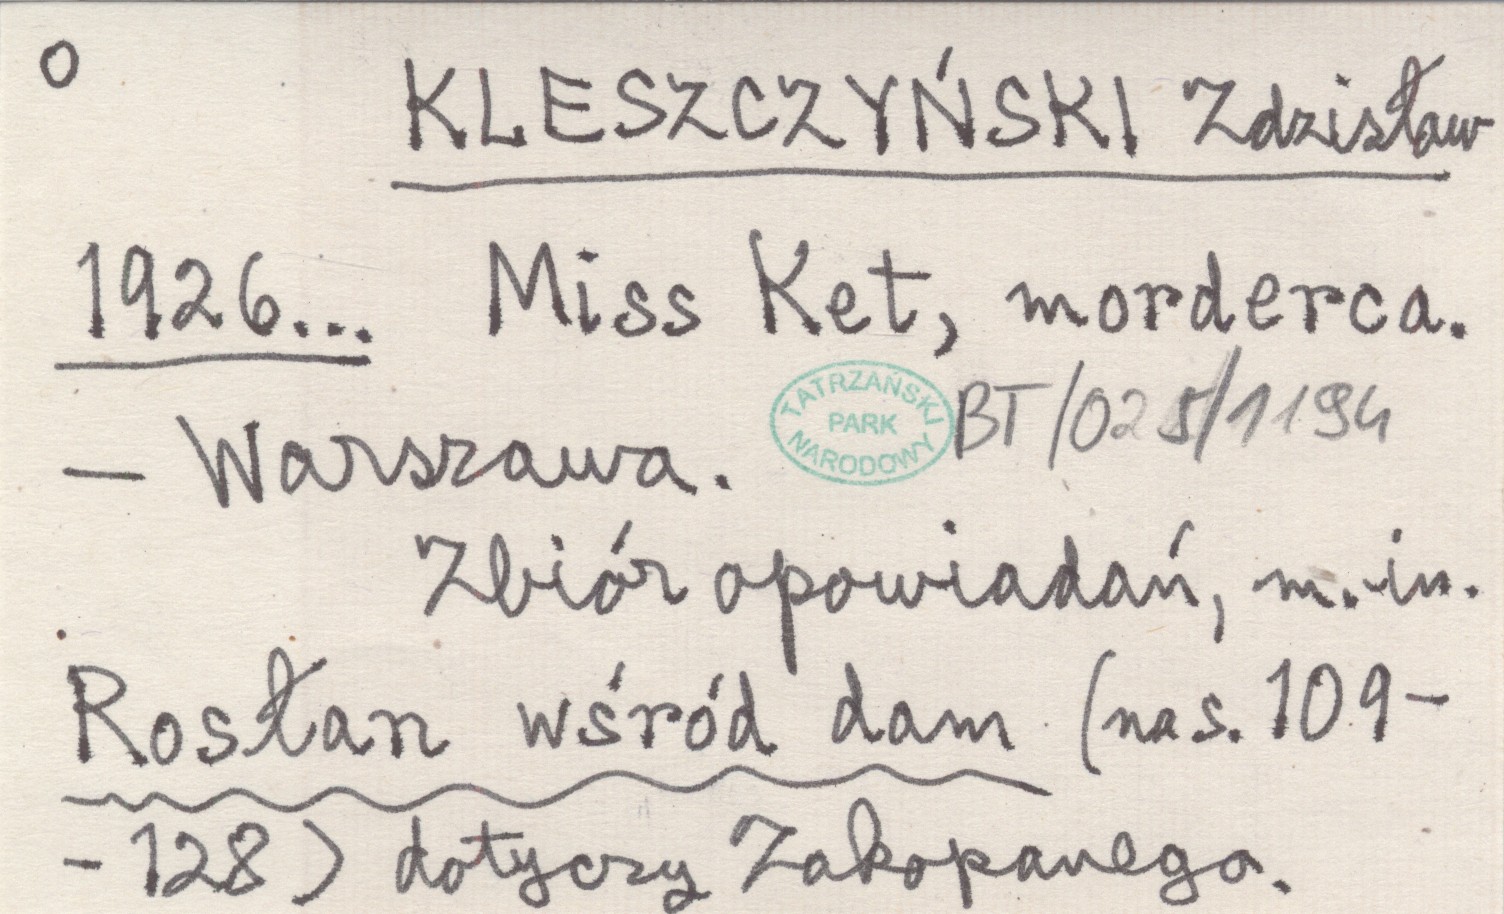 O
KLESZCZYŃSKI Zdzisław
1926... Miss Ket, morderca.
TATRZAŃSKI PARK NARODOWY
BT/025/1194
— Warszawa.
Zbiór opowiadań, m.in.
Rosłan wśród dam (na s. 109-
-128) dotyczy Zakopanego.